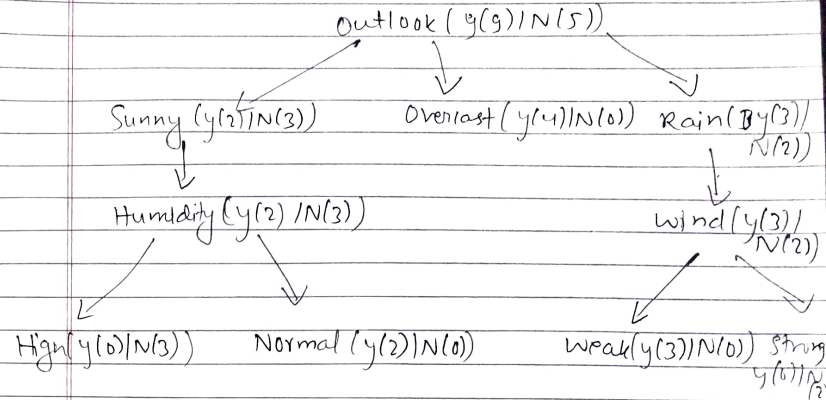 Outlook (y(9)/N(5))
Sunny (y(2)/N(3)) Overcast (y(4)/N(0)) Rain (y(3)/
N(2))
Humidity (y(2)/N(3)) Wind (y(3)/
N(2))
Hign (y(0)/N(3)) Normal (y(2)/N(0)) Weak (y(3)/N(0)) Strong
y(0)/N
(2)